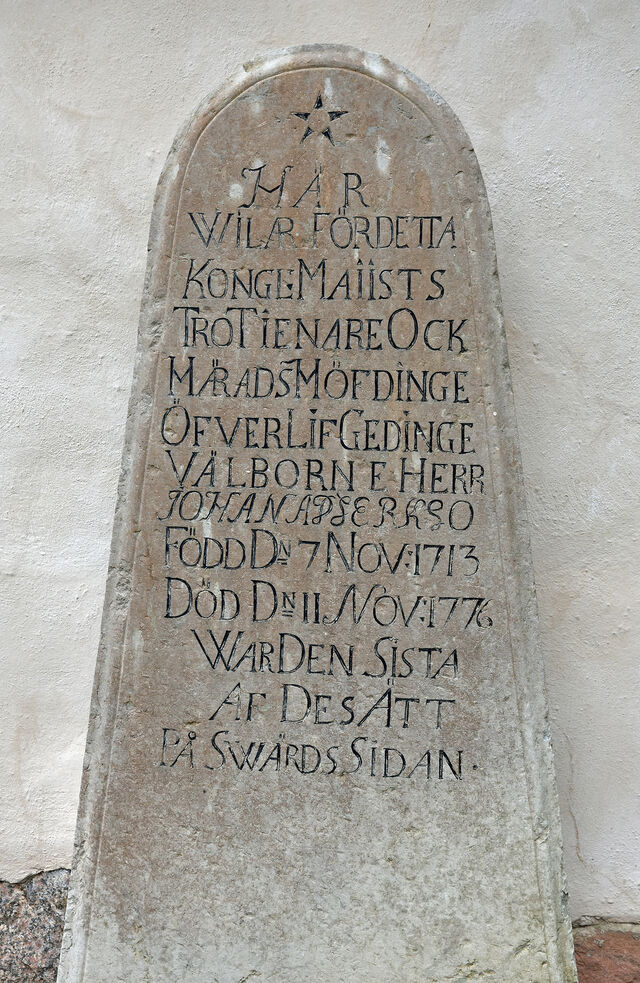 HÄR
WILAR FÖRDETTA
KONGE MAIISTS
TROTIENARE OCK
HÄRADSHÖFDINGE
ÖFVER LIFGEDINGE
VÄLBORNE HERR
JOHAN
FÖDD DN 7 NOV: 1713
DÖD DN 11 NOV: 1776
WAR DEN SISTA
AF DES ÄTT
PÅ SWÄRDS SIDAN.